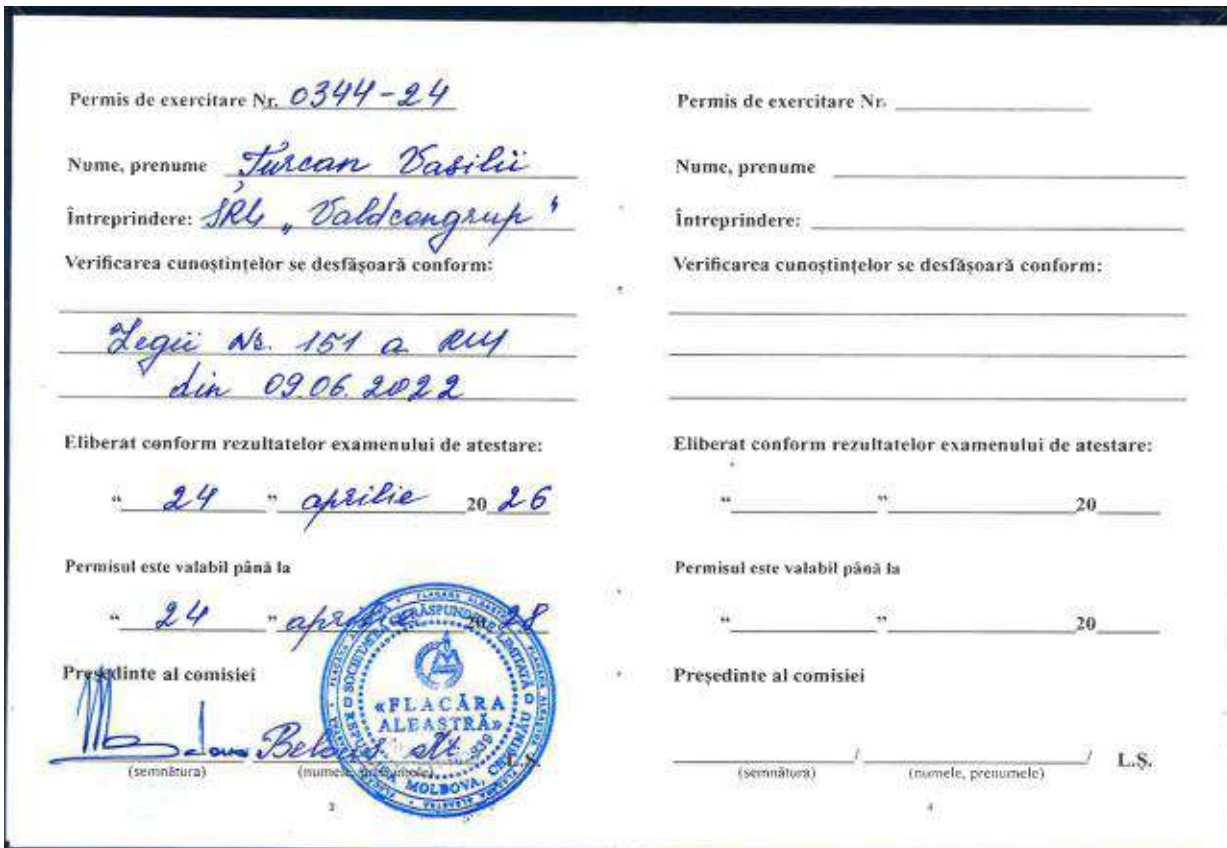 Permis de exercitare Nr. 0344-24
Nume, prenume Țurcan Vasilii
Întreprindere: SRL „Valdcongrup"
Verificarea cunoștințelor se desfășoară conform:
Legii Nr. 151 a RM
din 09.06.2022
Eliberat conform rezultatelor examenului de atestare:
“ 24 ” aprilie 20 26
Permisul este valabil până la
“ 24 ” aprilie 20 28
Președinte al comisiei
Belous
(semnătura) (numele, prenumele) L.Ș.
«FLACĂRA
ALBASTRĂ»
3
Permis de exercitare Nr.
Nume, prenume
Întreprindere:
Verificarea cunoștințelor se desfășoară conform:
Eliberat conform rezultatelor examenului de atestare:
“ ” 20
Permisul este valabil până la
“ ” 20
Președinte al comisiei
/ / L.Ș.
(semnătura) (numele, prenumele)
4